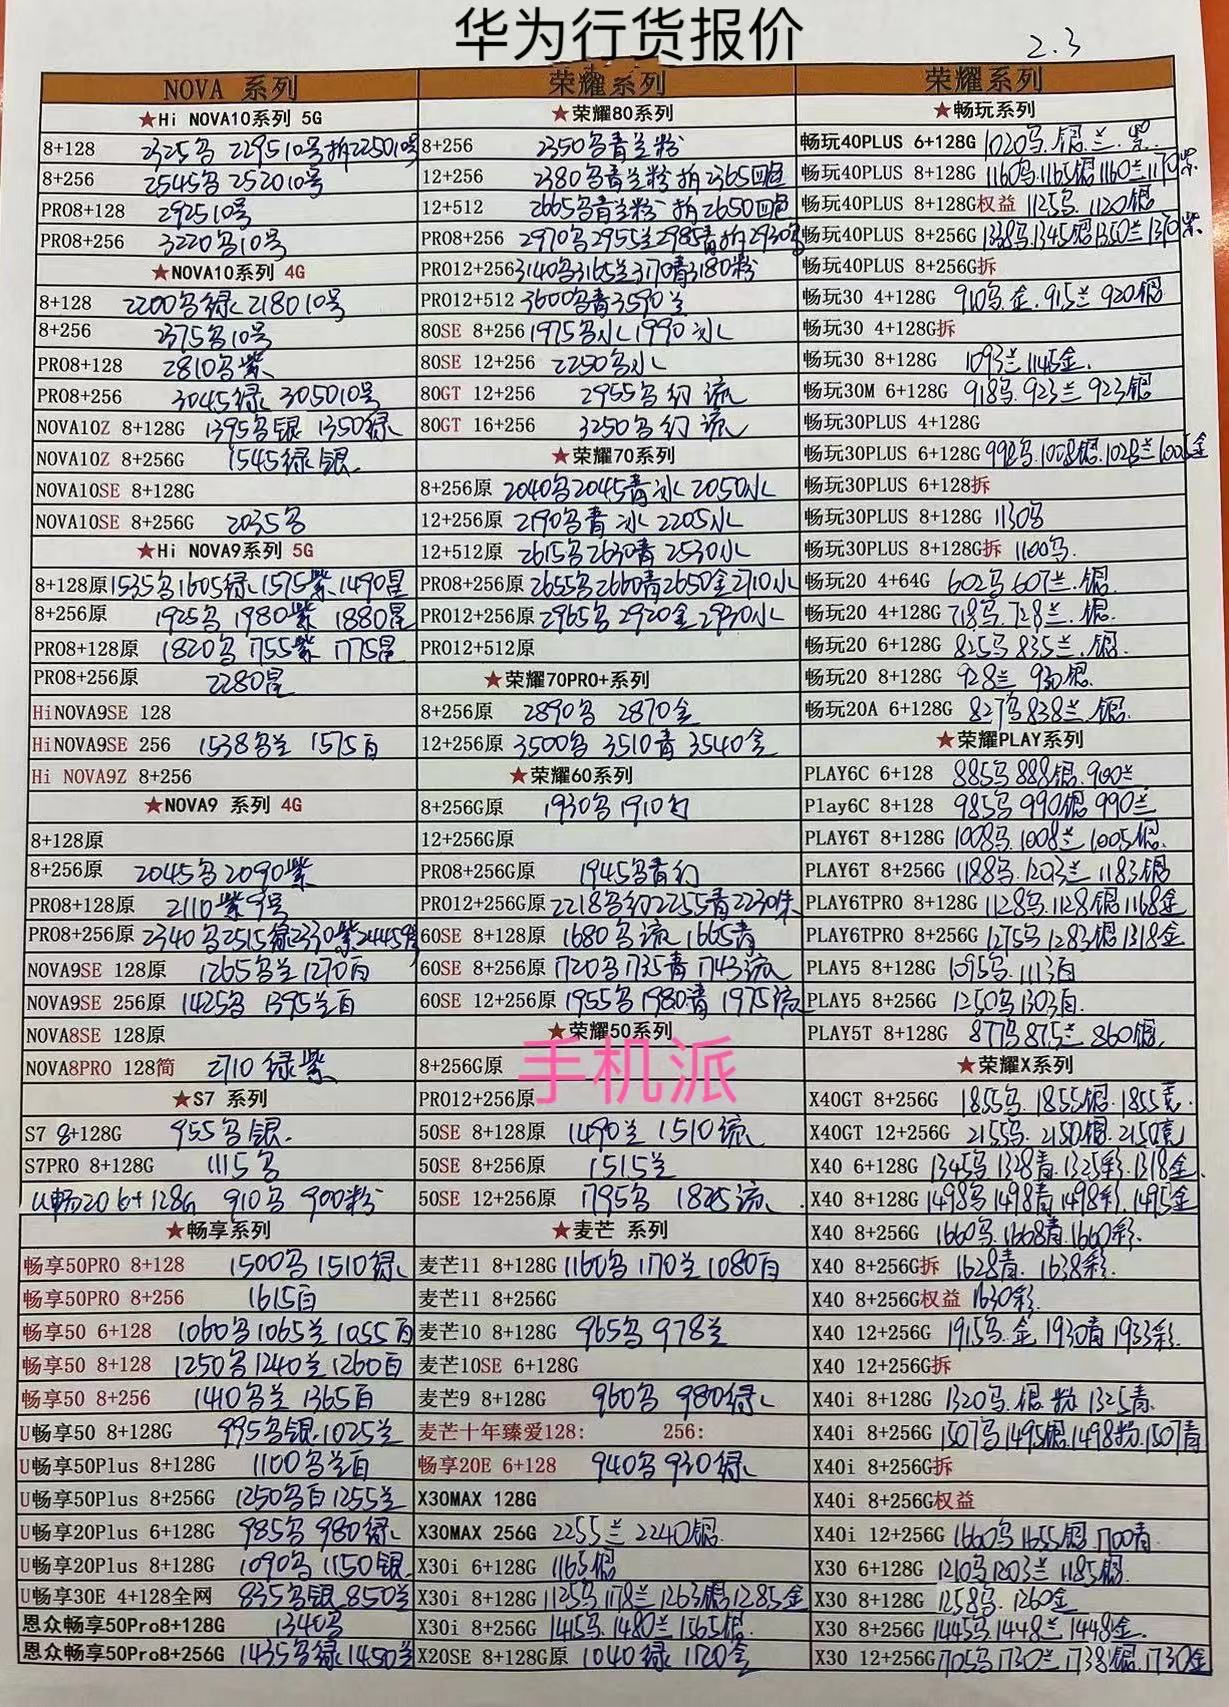 华为行货报价
2.3
NOVA 系列
★Hi NOVA10系列 5G
8+128 2325乌 2295 10号 拆2250 10号
8+256 2545乌 2520 10号
PRO8+128 2925 10号
PRO8+256 3220乌 10号
★NOVA10系列 4G
8+128 2200乌绿 2180 10号
8+256 2375乌 10号
PRO8+128 2810乌紫
PRO8+256 3045绿 3050 10号
NOVA10Z 8+128G 1395乌银 1350绿
NOVA10Z 8+256G 1545绿银
NOVA10SE 8+128G
NOVA10SE 8+256G 2035乌
★Hi NOVA9系列 5G
8+128原 1535乌 1605绿 1575紫 1490星
8+256原 1925乌 1980紫 1880星
PRO8+128原 1820乌 1755紫 1775星
PRO8+256原 2280星
HiNOVA9SE 128
HiNOVA9SE 256 1538乌兰 1575百
Hi NOVA9Z 8+256
★NOVA9 系列 4G
8+128原
8+256原 2045乌 2090紫
PRO8+128原 2110紫 9号
PRO8+256原 2340乌 2515绿 2330紫 2445
NOVA9SE 128原 1265乌兰 1270百
NOVA9SE 256原 1425乌 1395兰百
NOVA8SE 128原
NOVA8PRO 128简 2710 绿紫
★S7 系列
S7 8+128G 955乌银.
S7PRO 8+128G 1115乌
U畅20 6+128G 910乌 900粉
★畅享系列
畅享50PRO 8+128 1500乌 1510绿
畅享50PRO 8+256 1615百
畅享50 6+128 1060乌 1065兰 1055百
畅享50 8+128 1250乌 1240兰 1260百
畅享50 8+256 1410乌兰 1365百
U畅享50 8+128G 995乌银.1025兰
U畅享50Plus 8+128G 1100乌兰百
U畅享50Plus 8+256G 1250乌百 1255兰
U畅享20Plus 6+128G 985乌 980绿
U畅享20Plus 8+128G 1090乌 1150银
U畅享30E 4+128全网 835乌银 850兰
恩众畅享50Pro8+128G 1340乌
恩众畅享50Pro8+256G 1435乌绿 1450兰
荣耀系列
★荣耀80系列
8+256 2350乌青兰粉
12+256 2380乌青兰粉 拆2365四色
12+512 2665乌青兰粉 拆2650四色
PRO8+256 2970乌 2955兰 2985青 拆2930乌
PRO12+256 3140乌 3165兰 3170青 3180粉
PRO12+512 3600乌青 3590兰
80SE 8+256 1975乌水 1990冰
80SE 12+256 2250乌水
80GT 12+256 2955乌幻 流
80GT 16+256 3250乌幻 流
★荣耀70系列
8+256原 2040乌 2045青冰 2050水
12+256原 2190乌青 冰 2205水
12+512原 2615乌 2630青 2530水
PRO8+256原 2655乌 2660青 2650金 2710水
PRO12+256原 2965乌 2920金 2930水
PRO12+512原
★荣耀70PRO+系列
8+256原 2890乌 2870金
12+256原 3500乌 3510青 3540金
★荣耀60系列
8+256G原 1930乌 1910幻
12+256G原
PRO8+256G原 1945乌青幻
PRO12+256G原 2218乌幻 2255青 2230朱
60SE 8+128原 1680乌流 1665青
60SE 8+256原 1720乌 1735青 1743流
60SE 12+256原 1955乌 1980青 1975流
★荣耀50系列
手机派
8+256G原
PRO12+256原
50SE 8+128原 1490兰 1510流
50SE 8+256原 1515兰
50SE 12+256原 1795乌 1825流
★麦芒 系列
麦芒11 8+128G 1160乌 1170兰 1080百
麦芒11 8+256G
麦芒10 8+128G 965乌 978兰
麦芒10SE 6+128G
麦芒9 8+128G 960乌 980绿
麦芒十年臻爱128: 256:
畅享20E 6+128 940乌 930绿
X30MAX 128G
X30MAX 256G 2255兰 2240银
X30i 6+128G 1165银
X30i 8+128G 1125乌 1178兰 1263银 1285金
X30i 8+256G 1415乌.1480兰 1565银
X20SE 8+128G原 1040绿 1120金
荣耀系列
★畅玩系列
畅玩40PLUS 6+128G 1020乌.银.兰.紫
畅玩40PLUS 8+128G 1160乌.1165银 1160兰 1170紫
畅玩40PLUS 8+128G权益 1125乌.1120银
畅玩40PLUS 8+256G 1338乌.1345银 1350兰 1370紫
畅玩40PLUS 8+256G拆
畅玩30 4+128G 910乌.金.915兰 920银
畅玩30 4+128G拆
畅玩30 8+128G 1093兰 1145金.
畅玩30M 6+128G 918乌.923兰 923银
畅玩30PLUS 4+128G
畅玩30PLUS 6+128G 998乌.1008银.1028兰 1005金
畅玩30PLUS 6+128拆
畅玩30PLUS 8+128G 1130乌
畅玩30PLUS 8+128G拆 1100乌.
畅玩20 4+64G 602乌 607兰.银.
畅玩20 4+128G 718乌.728兰.银.
畅玩20 6+128G 825乌 835兰.银.
畅玩20 8+128G 928兰 930银.
畅玩20A 6+128G 827乌 838兰.银.
★荣耀PLAY系列
PLAY6C 6+128 885乌 888银.900兰
Play6C 8+128 985乌 990银 990兰
PLAY6T 8+128G 1008乌.1008兰 1005银.
PLAY6T 8+256G 1188乌.1203兰 1183银
PLAY6TPRO 8+128G 1128乌.1128银 1168金
PLAY6TPRO 8+256G 1275乌 1283银 1318金
PLAY5 8+128G 1095乌.1113百
PLAY5 8+256G 1250乌 1303百.
PLAY5T 8+128G 877乌 875兰 860银.
★荣耀X系列
X40GT 8+256G 1855乌.1855银.1855竞.
X40GT 12+256G 2155乌.2150银.2150竞
X40 6+128G 1345乌 1328青.1325彩.1318金.
X40 8+128G 1498乌 1498青 1498彩.1495金
X40 8+256G 1660乌.1668青.1660彩.
X40 8+256G拆 1628青. 1638彩.
X40 8+256G权益 1630彩.
X40 12+256G 1915乌.金 1930青 1933彩.
X40 12+256G拆
X40i 8+128G 1320乌.银 粉 1325青.
X40i 8+256G 1507乌 1495银 1498粉.1507青
X40i 8+256G拆
X40i 8+256G权益
X40i 12+256G 1660乌 1655银 1700青
X30 6+128G 1210乌 1203兰 1185银.
X30 8+128G 1258乌. 1260金
X30 8+256G 1445乌 1448兰 1448金.
X30 12+256G 1705乌 1730兰 1738银.1730金